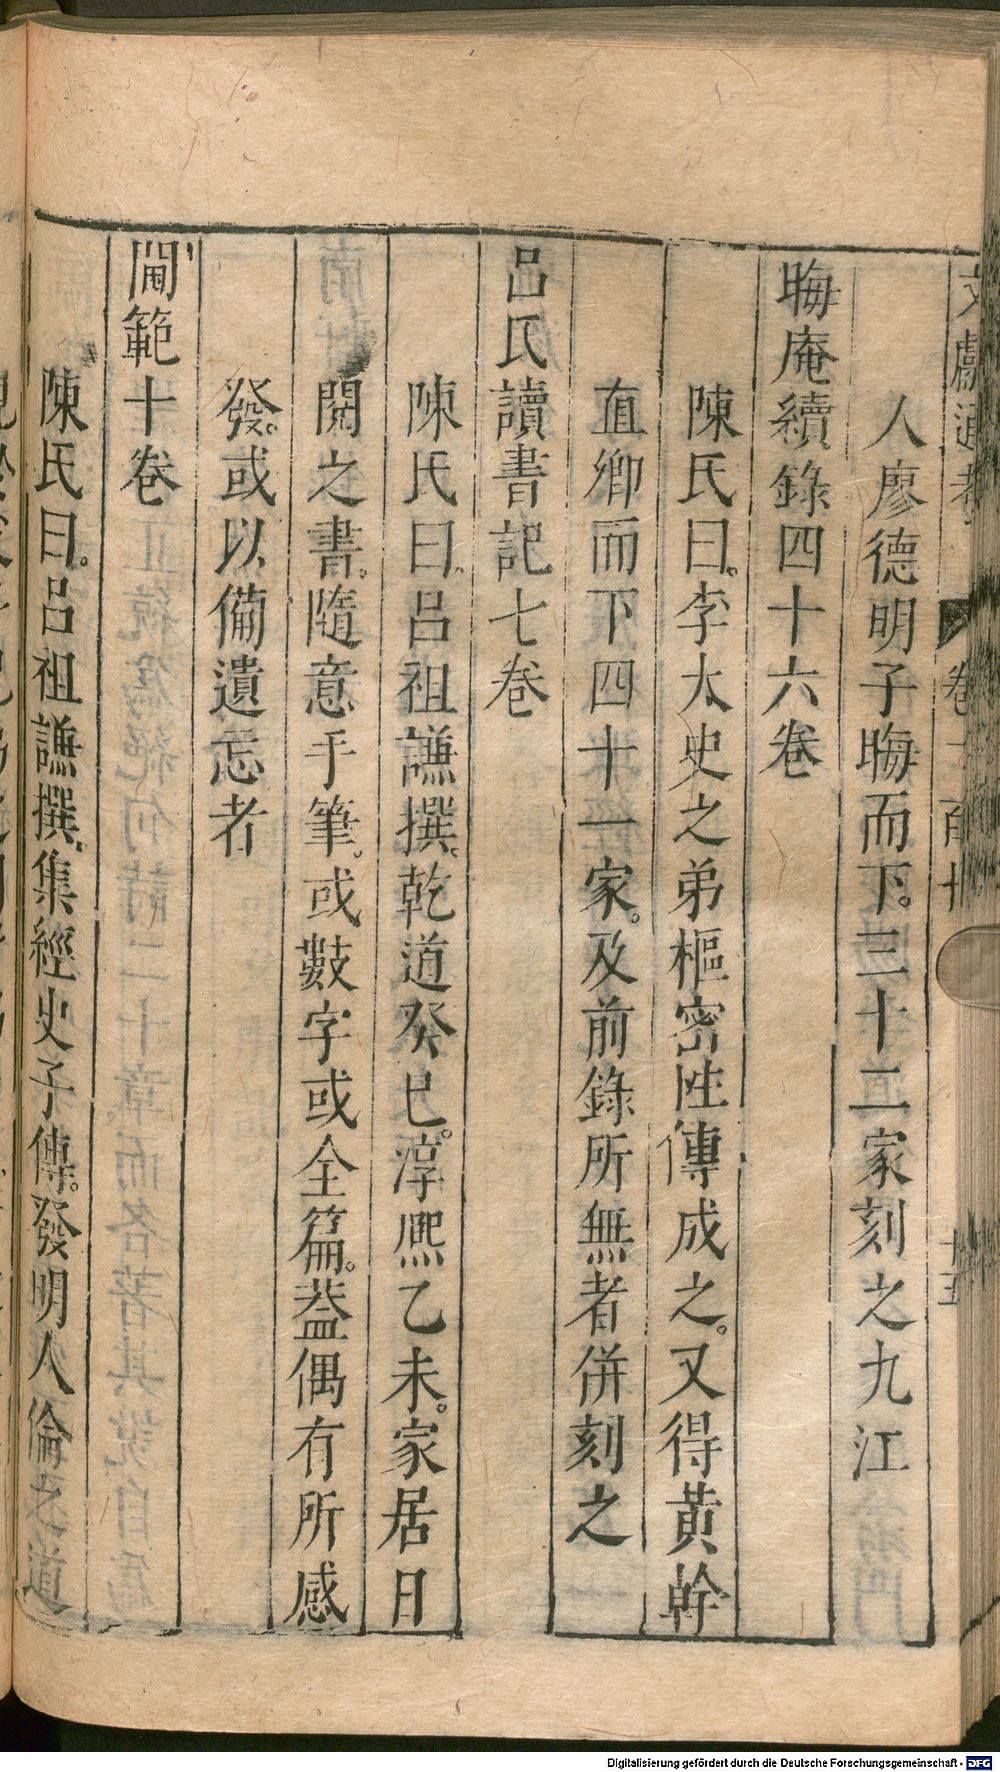 文獻通考 卷二百十 十五
人廖德明子晦而下。三十二家刻之九江
晦庵續錄四十六卷
陳氏曰。李太史之弟樞密性傳成之。又得黃幹
直卿而下四十一家。及前錄所無者併刻之
呂氏讀書記七卷
陳氏曰。呂祖謙撰。乾道癸巳。淳熙乙未。家居日
閱之書。隨意手筆。或數字或全篇。葢偶有所感
發。或以備遺忘者
閫範十卷
陳氏曰。呂祖謙撰。集經史子傳。發明人倫之道
Digitalisierung gefördert durch die Deutsche Forschungsgemeinschaft - DFG